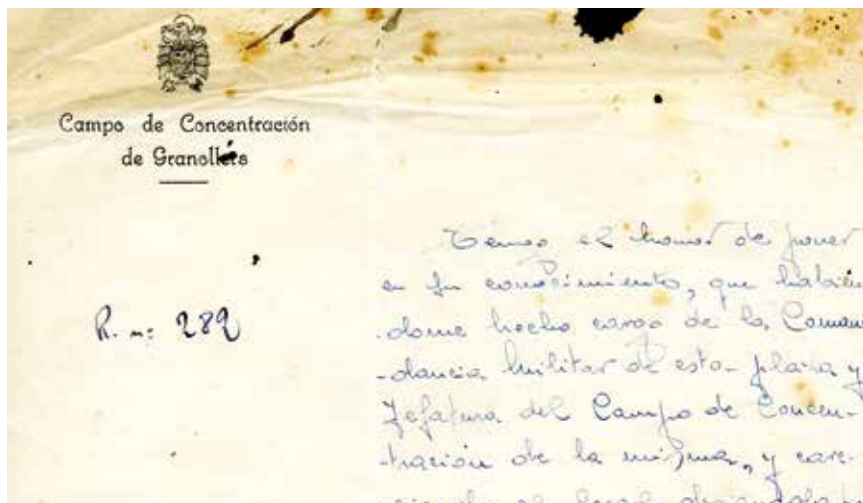 Campo de Concentración
de Granollers
R. n: 282
Tengo el honor de poner
en su conocimiento, que habién
-dome hecho cargo de la Coman
-dancia militar de esta plaza y
Jefatura del Campo de Concen-
tración de la misma, y care-